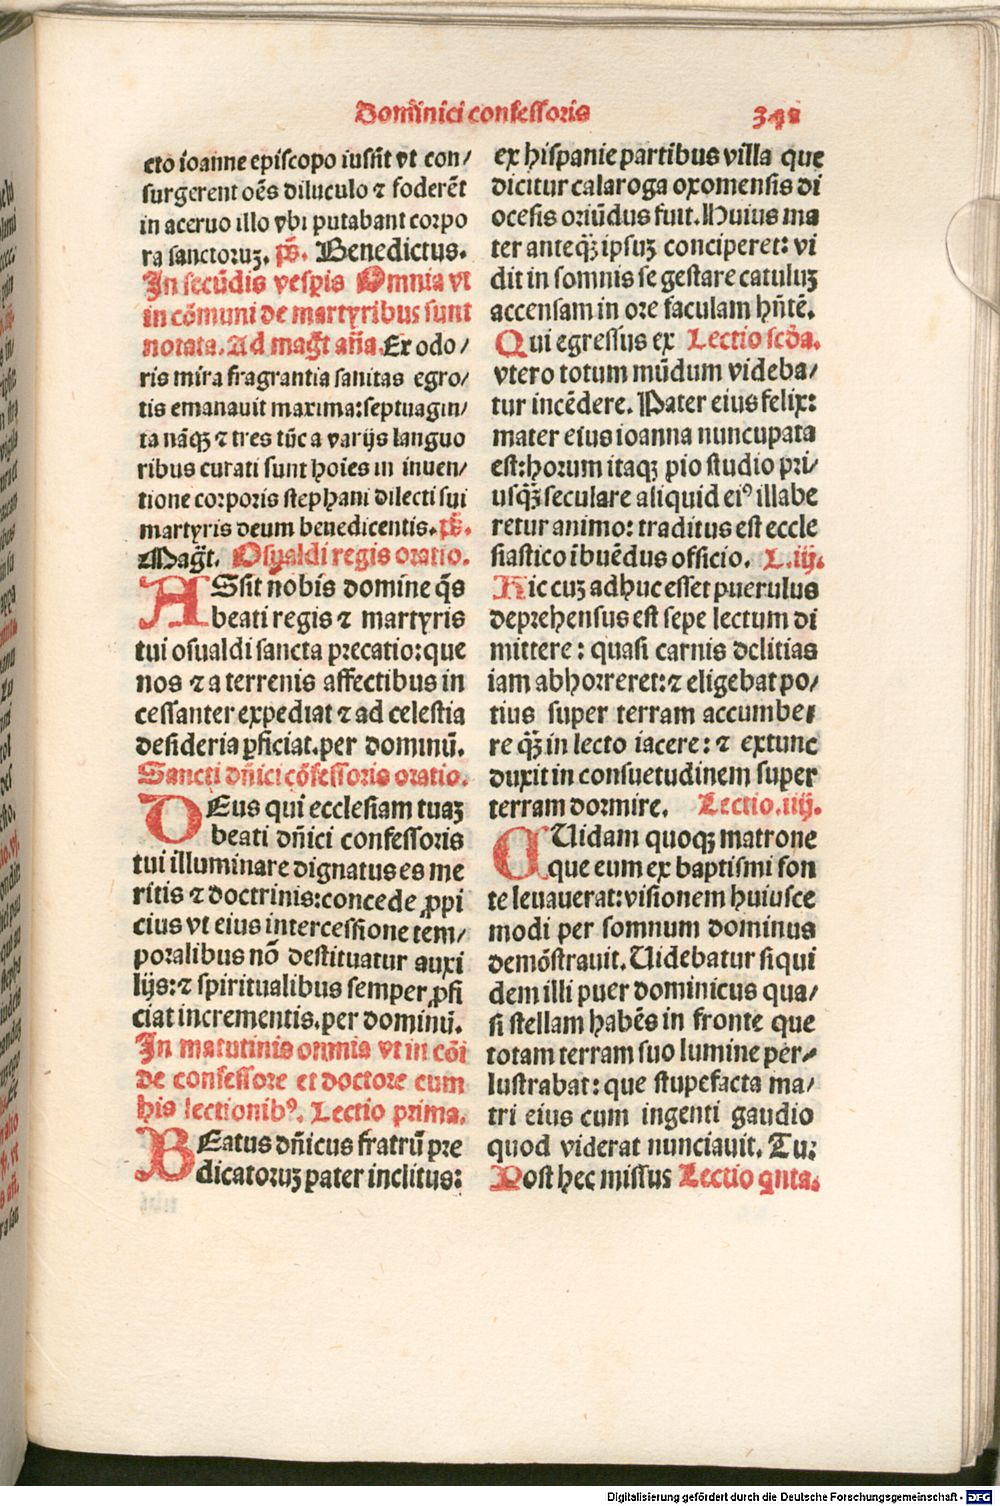 Dom̄inici confessoris 348
cto ioanne episcopo iussit̄ vt con/
surgerent oēs diluculo ⁊ foderēt
in aceruo illo vbi putabant corpo
ra sanctoruꝫ. ps̄. Benedictus.
In secūdis vespis Omnia vt
in cōmuni de martyribus sunt
notata. Ad magt̄ an̄a. Ex odo/
ris mira fragrantia sanitas egro/
tis emanauit maxima: septuagin/
ta nāqꝫ ⁊ tres tūc a varijs languo
ribus curati sunt hoīes in inuen/
tione corporis stephani dilecti sui
martyris deum benedicentis. ps̄.
Magt̄. Osualdi regis oratio.
ASsit nobis domine q̄s
beati regis ⁊ martyris
tui osualdi sancta precatio: que
nos ⁊ a terrenis affectibus in
cessanter expediat ⁊ ad celestia
desideria ꝑficiat. per dominū.
Sancti dn̄ici cōfessoris oratio.
DEus qui ecclesiam tuaꝫ
beati dn̄ici confessoris
tui illuminare dignatus es me
ritis ⁊ doctrinis: concede ꝓpi
cius vt eius intercessione tem/
poralibus nō destituatur auxi
lijs: ⁊ spiritualibus semper ꝓfi
ciat incrementis. per dominū.
In matutinis omnia vt in cōi
de confessore et doctore cum
his lectionibꝰ. Lectio prima.
BEatus dn̄icus fratrū pre
dicatoruꝫ pater inclitus:
ex hispanie partibus villa que
dicitur calaroga oxomensis di
ocesis oriūdus fuit. Huius ma
ter anteqꝫ̄ ipsuꝫ conciperet: vi
dit in somnis se gestare catuluꝫ
accensam in ore faculam hn̄tē.
Qui egressus ex Lectio scd̄a.
vtero totum mūdum videba/
tur incēdere. Pater eius felix:
mater eius ioanna nuncupata
est: horum itaqꝫ pio studio pri/
usqꝫ̄ seculare aliquid eiꝰ illabe
retur animo: traditus est eccle
siastico ībuēdus officio. L. iij.
Hic cuꝫ adhuc esset puerulus
deprehensus est sepe lectum di
mittere: quasi carnis delitias
iam abhorreret: ⁊ eligebat po/
tius super terram accumbe/
re qꝫ̄ in lecto iacere: ⁊ extunc
duxit in consuetudinem super
terram dormire. Lectio. iiij.
QUidam quoqꝫ matrone
que eum ex baptismi fon
te leuauerat: visionem huiusce
modi per somnum dominus
demōstrauit. Uidebatur siqui
dem illi puer dominicus qua/
si stellam habēs in fronte que
totam terram suo lumine per/
lustrabat: que stupefacta ma/
tri eius cum ingenti gaudio
quod viderat nunciauit. Tu:
Post hec missus Lectio qnta.
Digitalisierung gefördert durch die Deutsche Forschungsgemeinschaft - DFG